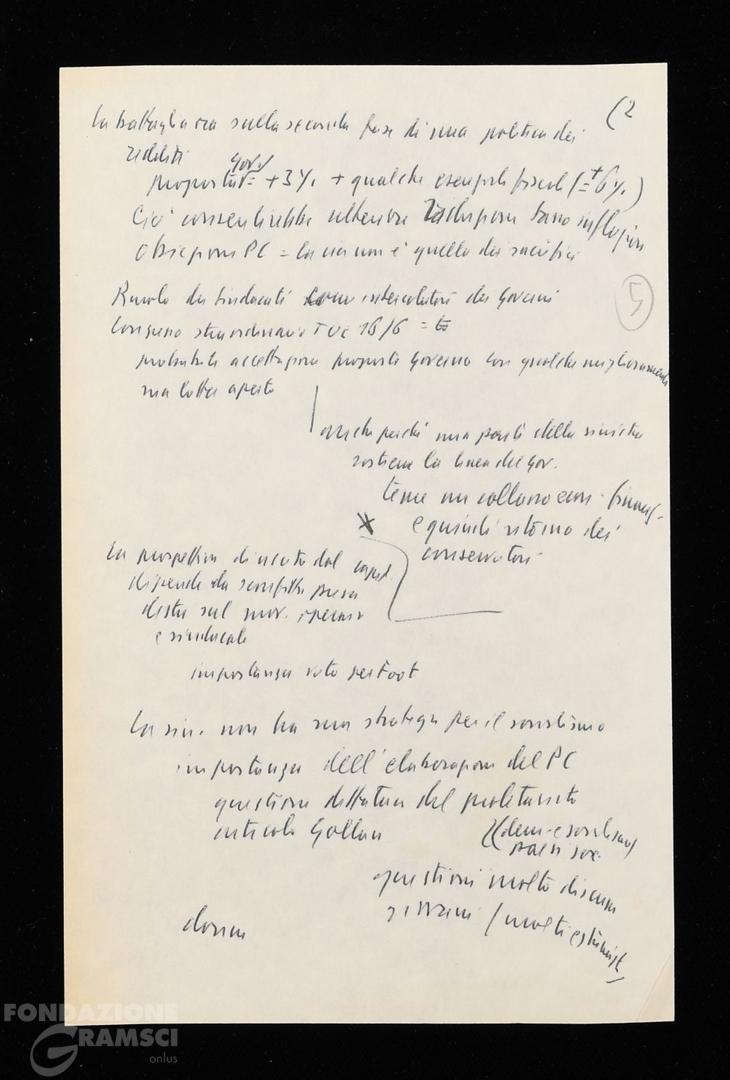 (2
La battaglia ora sulla seconda fase di una politica dei
redditi
gov.
proposta = +3% + qualche esenzione fiscale (= +6%)
Ciò consentirebbe ulteriore riduzione tasso inflazion
Obiezioni PC = la via non è quella dei sacrifici
5
Ruolo dei sindacati come interlocutori dei Governi
Congresso straordinario TUC 16/6 =
probabile accettazione proposte Governo con qualche miglioramento
ma lotta aperta
anche perché una parte della sinistra
sostiene la linea del Gov.
teme un collasso econ.
e quindi ritorno dei
conservatori
La prospettiva di uscita dal capit.
dipende da sconfitta presa
destra sul mov. operaio
e sindacale
importanza voto per Foot
La sin. non ha una strategia per il socialismo
importanza dell'elaborazione del PC
questione dittatura del proletariato
articolo Gollan
(dem. e socialismo
paesi soc.
questioni molto discusse
giovani / molti estremist.
donne
FONDAZIONE
GRAMSCI
onlus